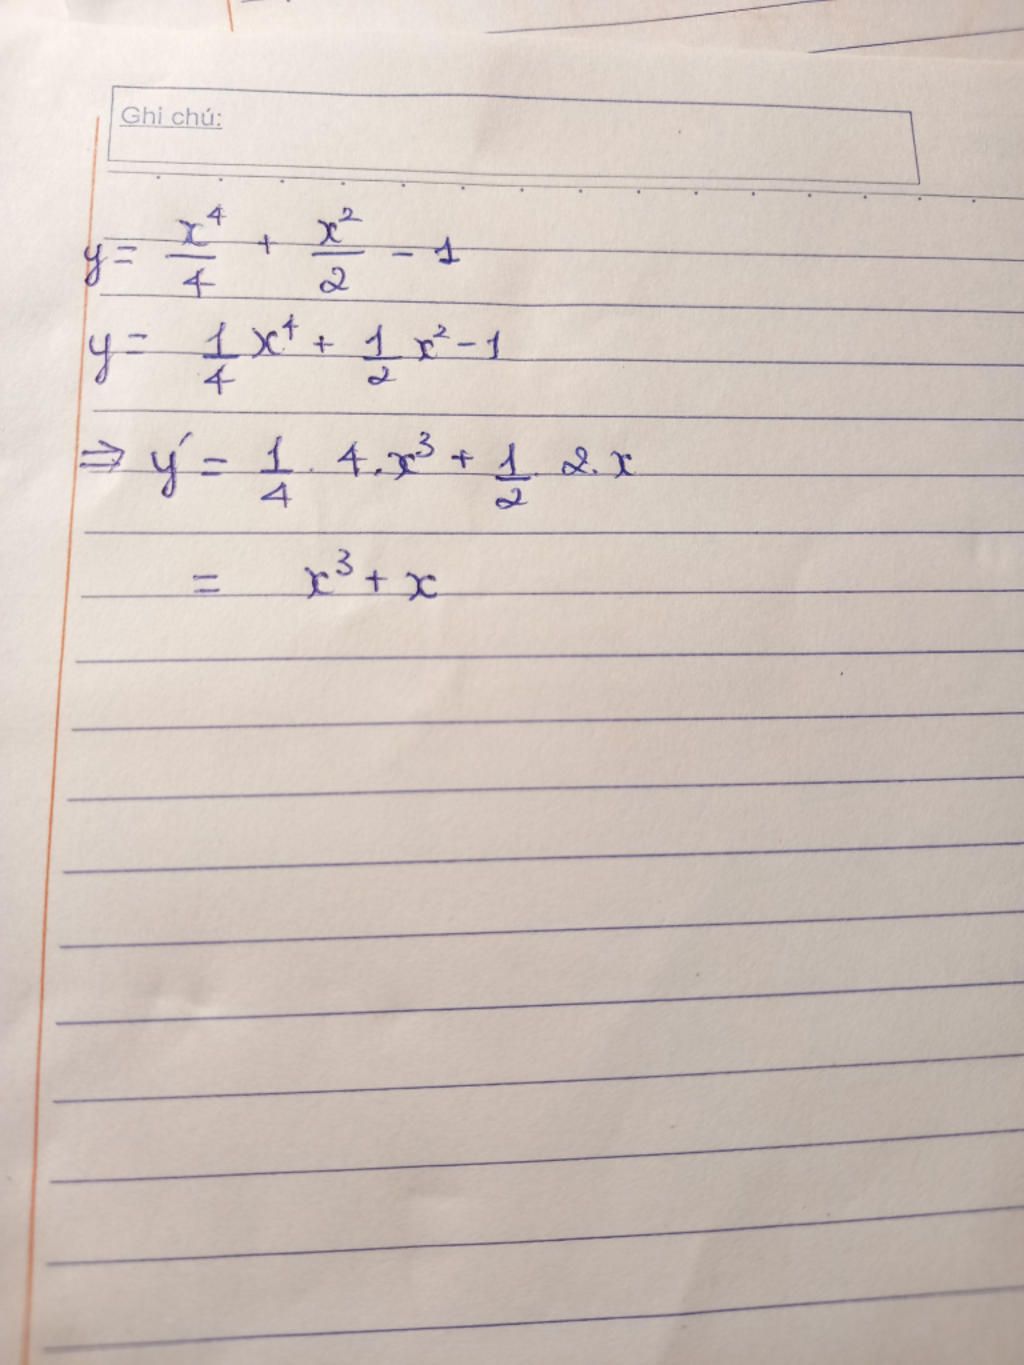 Ghi chú:
y = x⁴/4 + x²/2 - 1
y = 1/4 x⁴ + 1/2 x² - 1
⇒ y' = 1/4 . 4.x³ + 1/2 . 2.x
= x³ + x